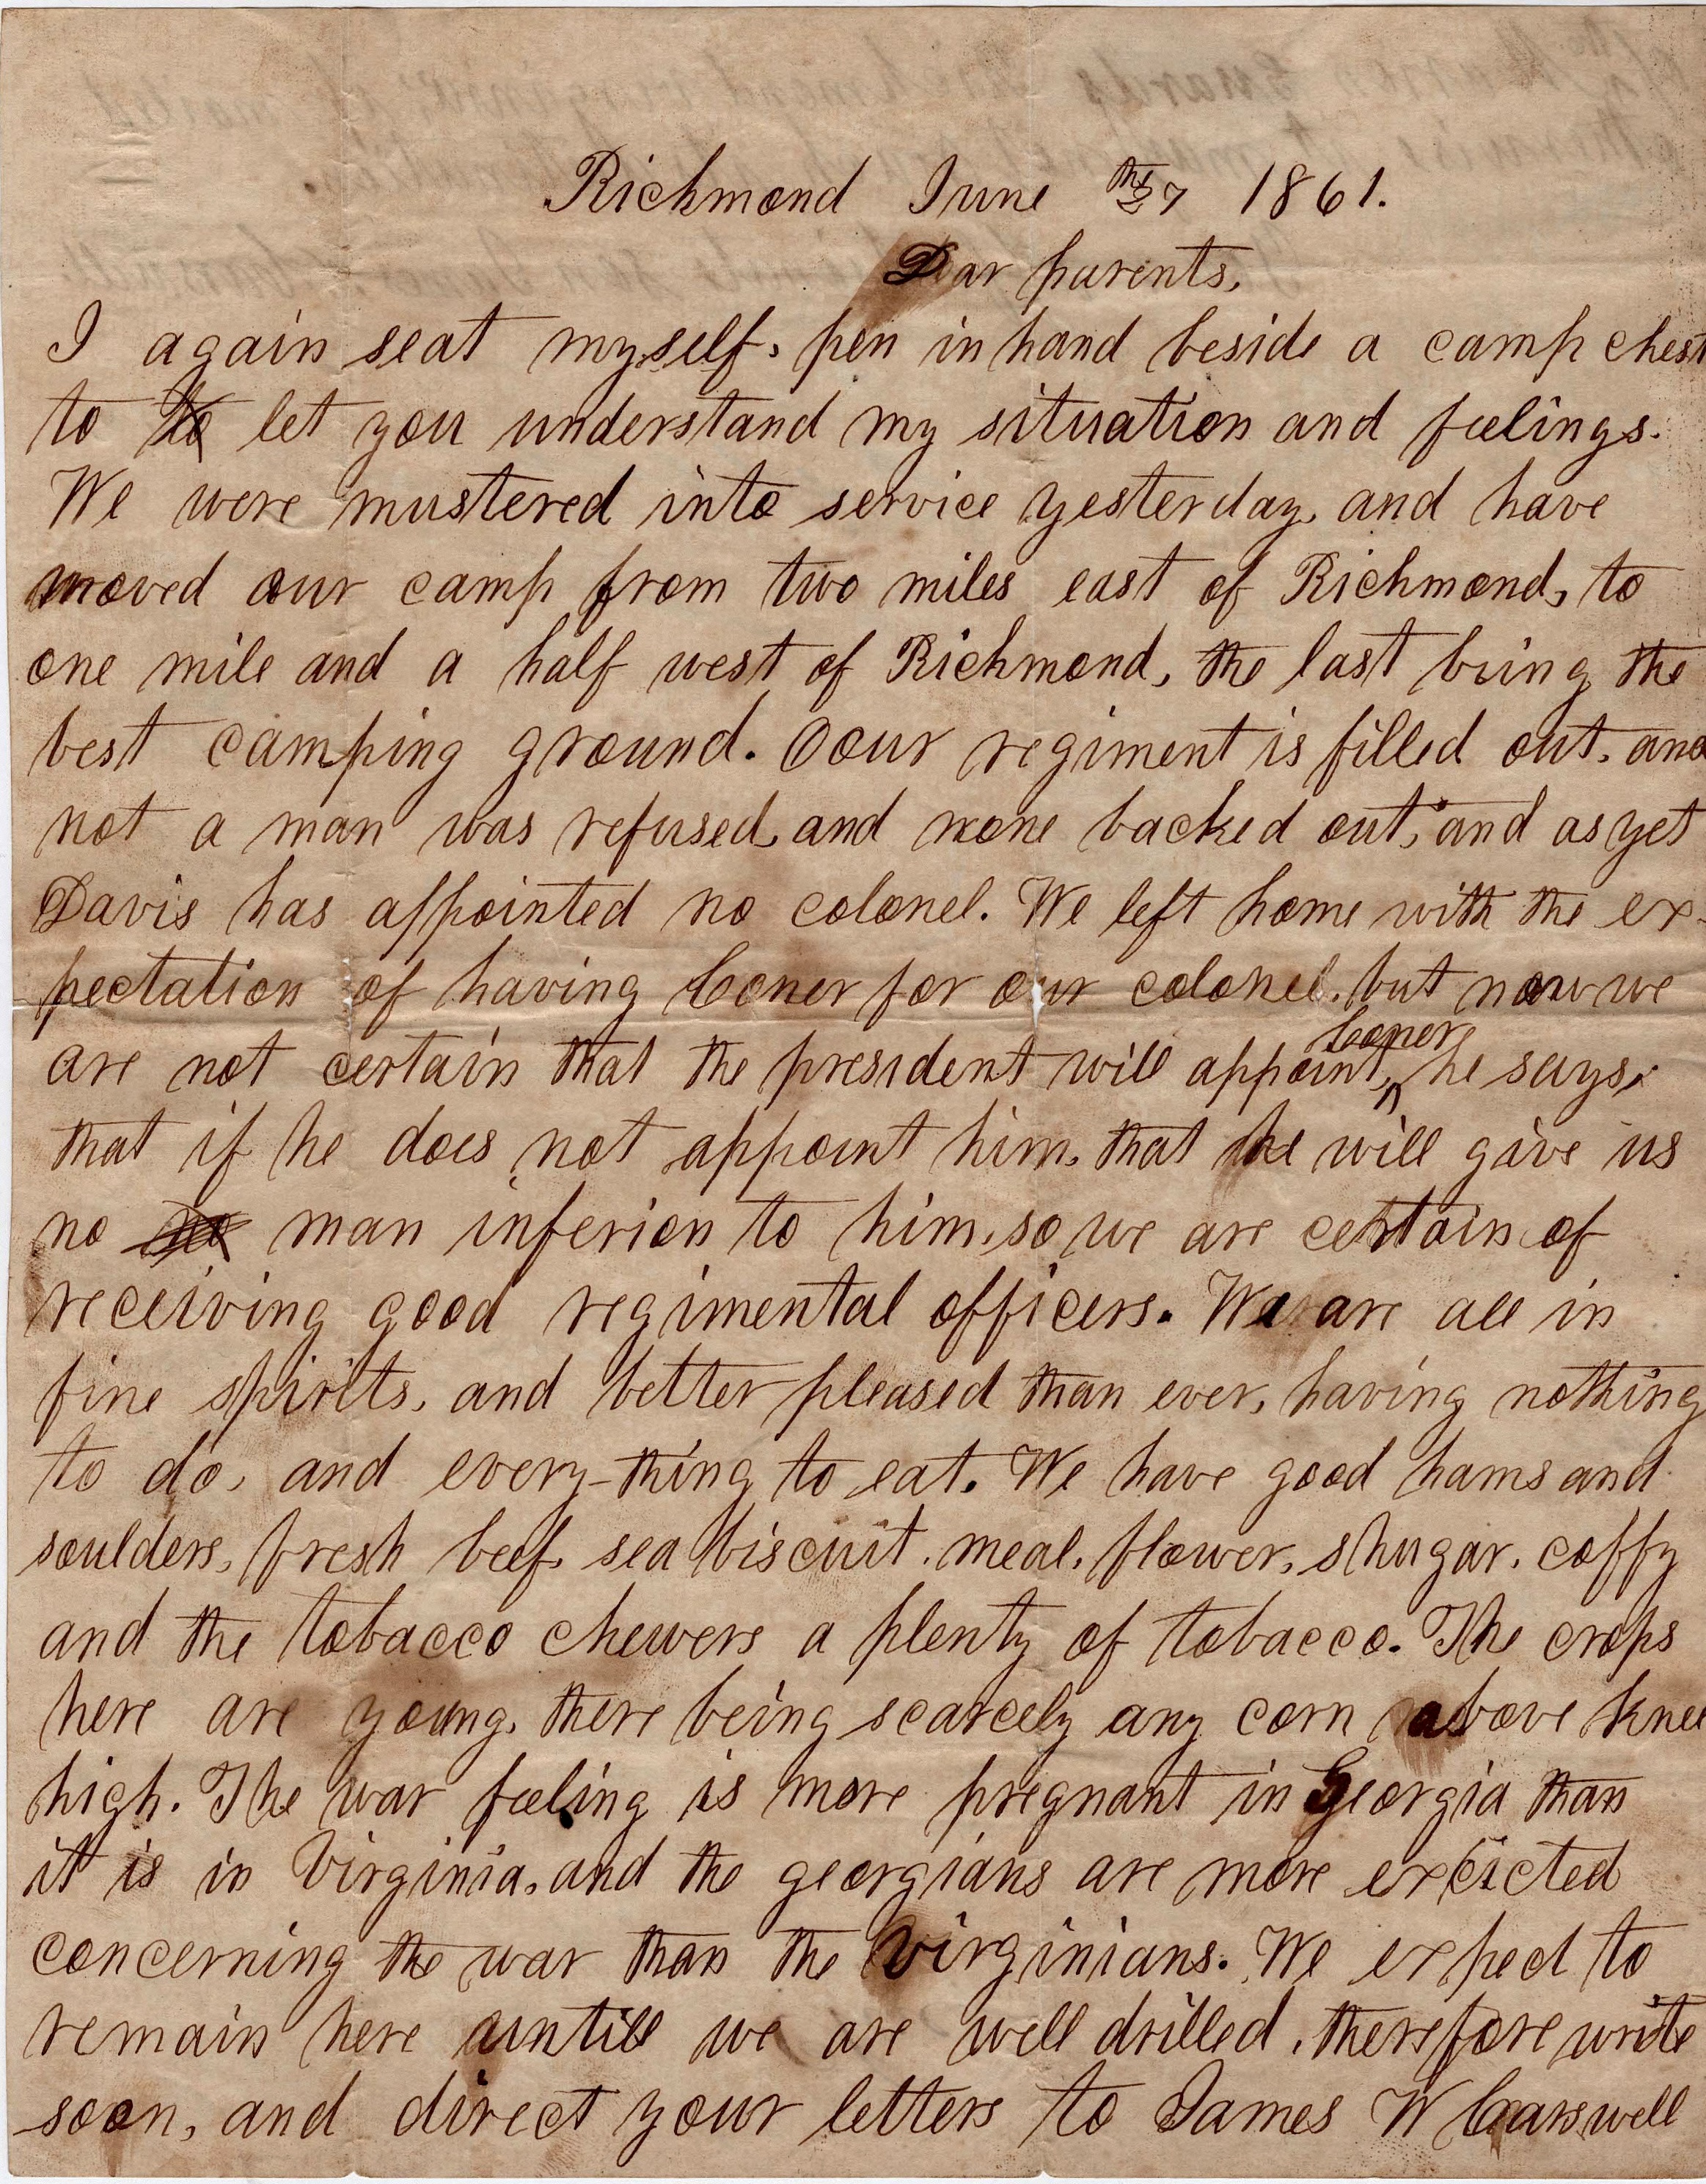 Richmond June the 27 1861.
Dear parents,
I again seat myself, pen in hand beside a camp chest
to to let you understand my situation and feelings.
We were mustered into service yesterday, and have
moved our camp from two miles east of Richmond, to
one mile and a half west of Richmond, the last being the
best camping ground. Oour regiment is filled out, and
not a man was refused, and none backed out, and as yet
Davis has appointed no colonel. We left home with the ex-
pectation of having Coner for our colonel, but now we
are not certain that the president will appoint, Coner he says,
that if he does not appoint him, that he will give us
no no man inferion to him, so we are certain of
receiving good regimental officers. We are all in
fine spirits, and better pleased than ever, having nothing
to do, and every-thing to eat. We have good hams and
soulders, fresh beef, sea biscuit, meal, flower, shugar, coffy
and the tobacco chewers a plenty of tobacco. The crops
here are young, there being scarcely any corn above knee
high. The war feeling is more pregnant in Georgia than
it is in Virginia, and the georgians are more excicted
concerning the war than the Virginians. We expect to
remain here untill we are well drilled, therefore write
soon, and direct your letters to James W Carswell